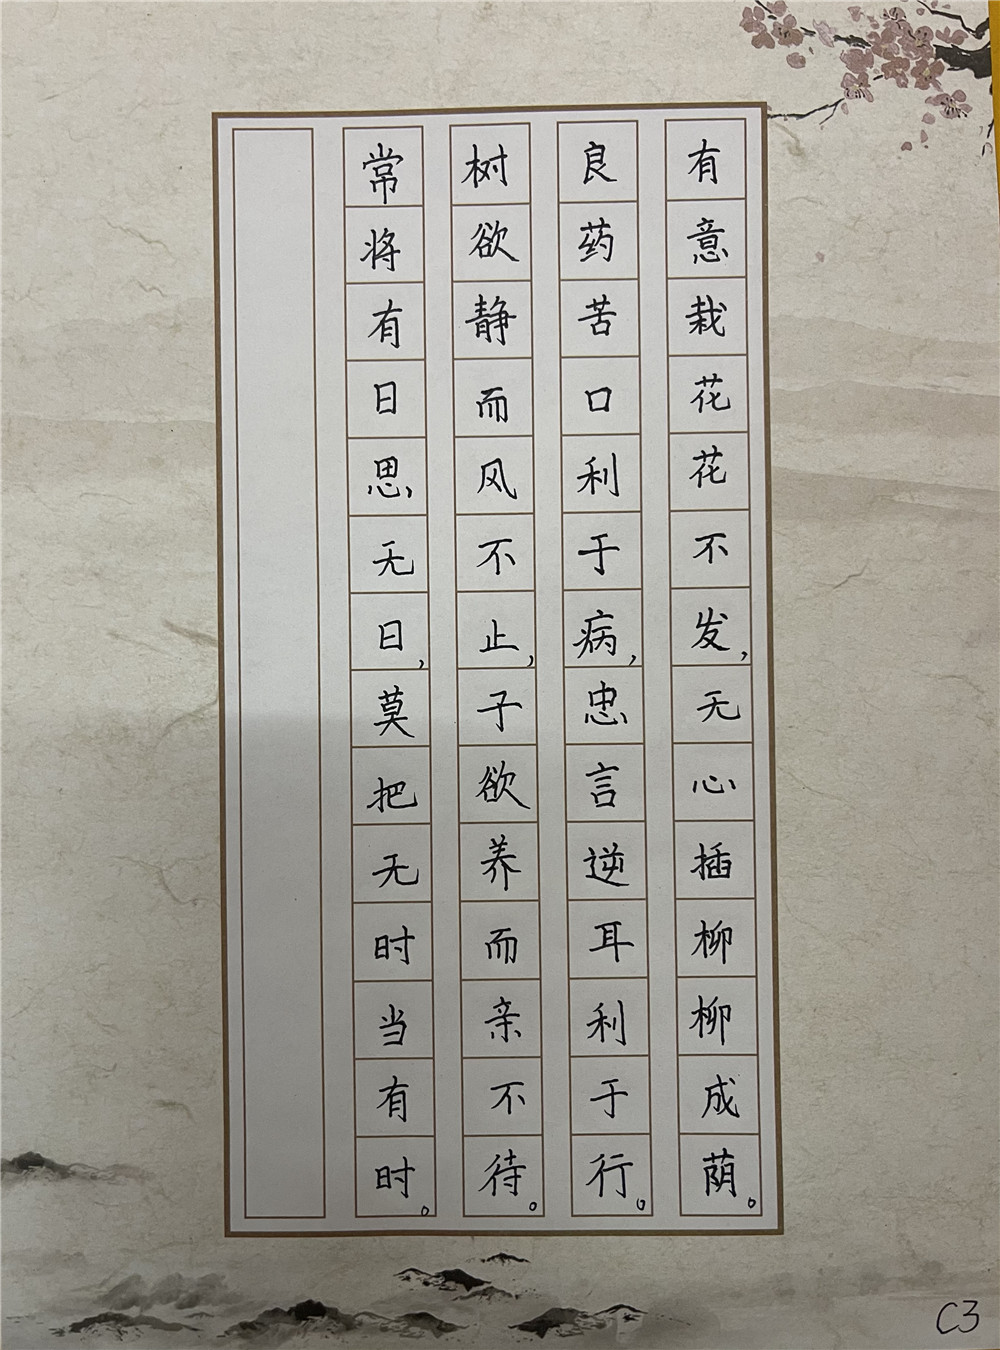 有意栽花花不发，无心插柳柳成荫。
良药苦口利于病，忠言逆耳利于行。
树欲静而风不止，子欲养而亲不待。
常将有日思无日，莫把无时当有时。
C3